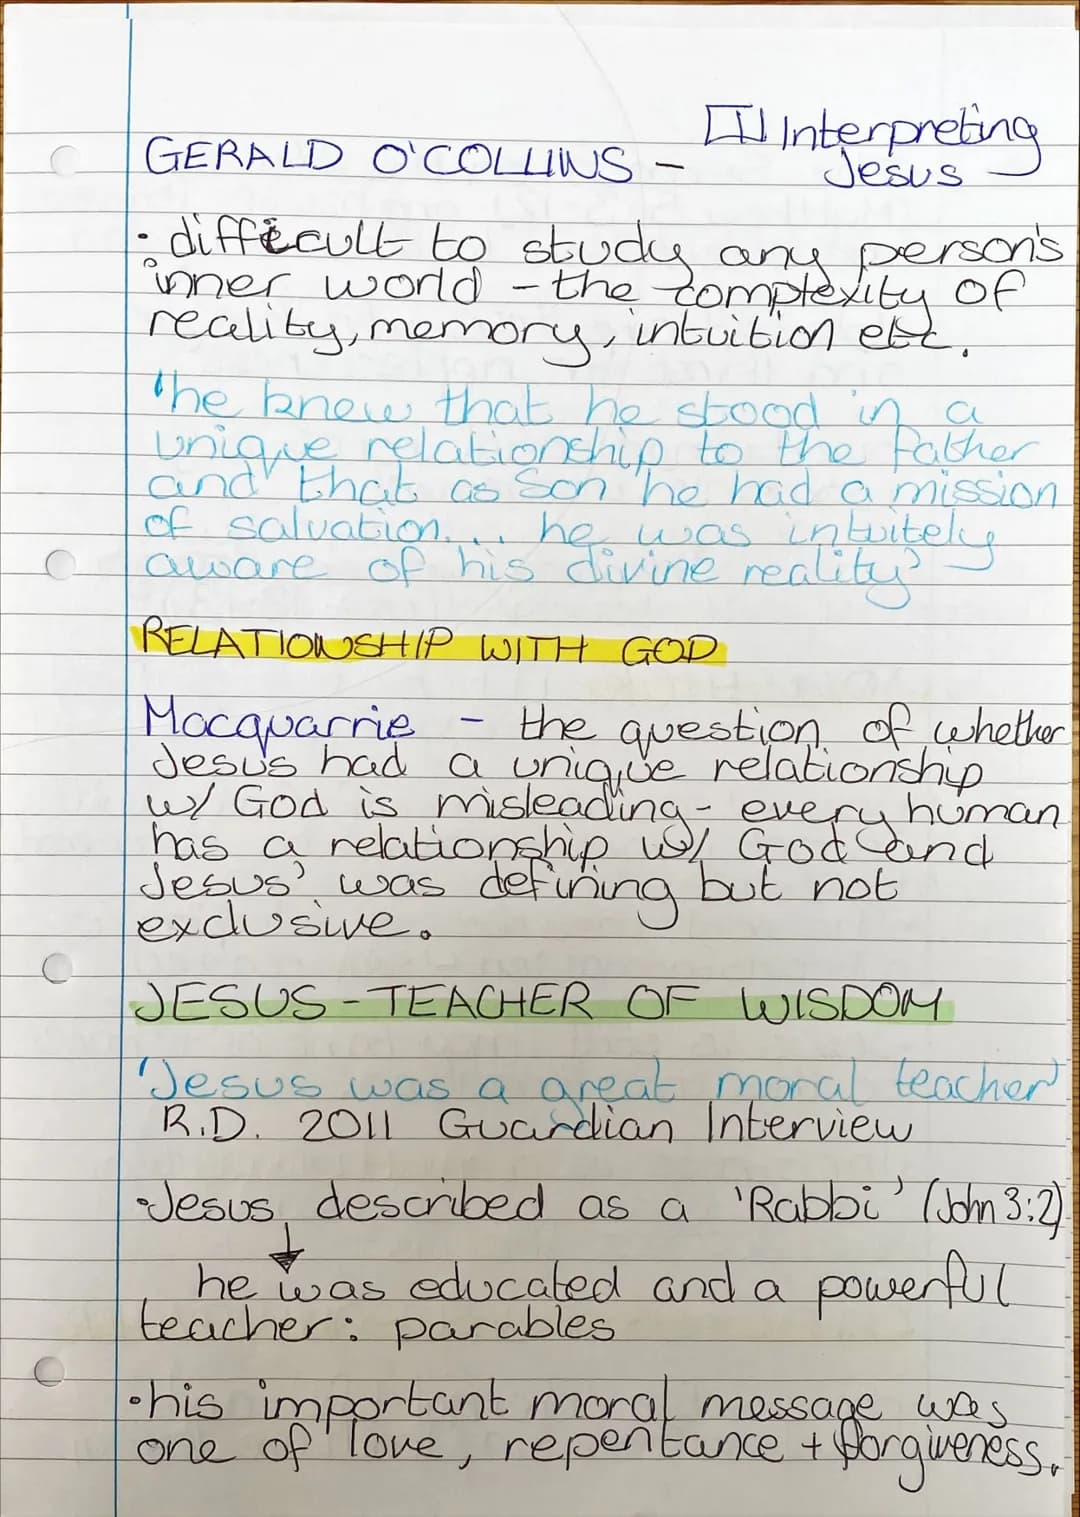 GERALD O'COLLINS - Interpreting
Jesus
• difficult to study any person's
inner world - the complexity of
reality, memory, intuition etc.
'he knew that he stood in a
unique relationship to the Father
and that as Son he had a mission
of salvation... he was intuitely
aware of his divine reality'
RELATIONSHIP WITH GOD
Macquarrie - the question of whether
Jesus had a unique relationship
w/ God is misleading - every human
has a relationship w/ God and
Jesus' was defining but not
exclusive.
JESUS - TEACHER OF WISDOM
'Jesus was a great moral teacher'
R.D. 2011 Guardian Interview
• Jesus described as a 'Rabbi' (John 3:2)
he was educated and a powerful
teacher: parables
• his important moral message was
one of love, repentance + forgiveness.